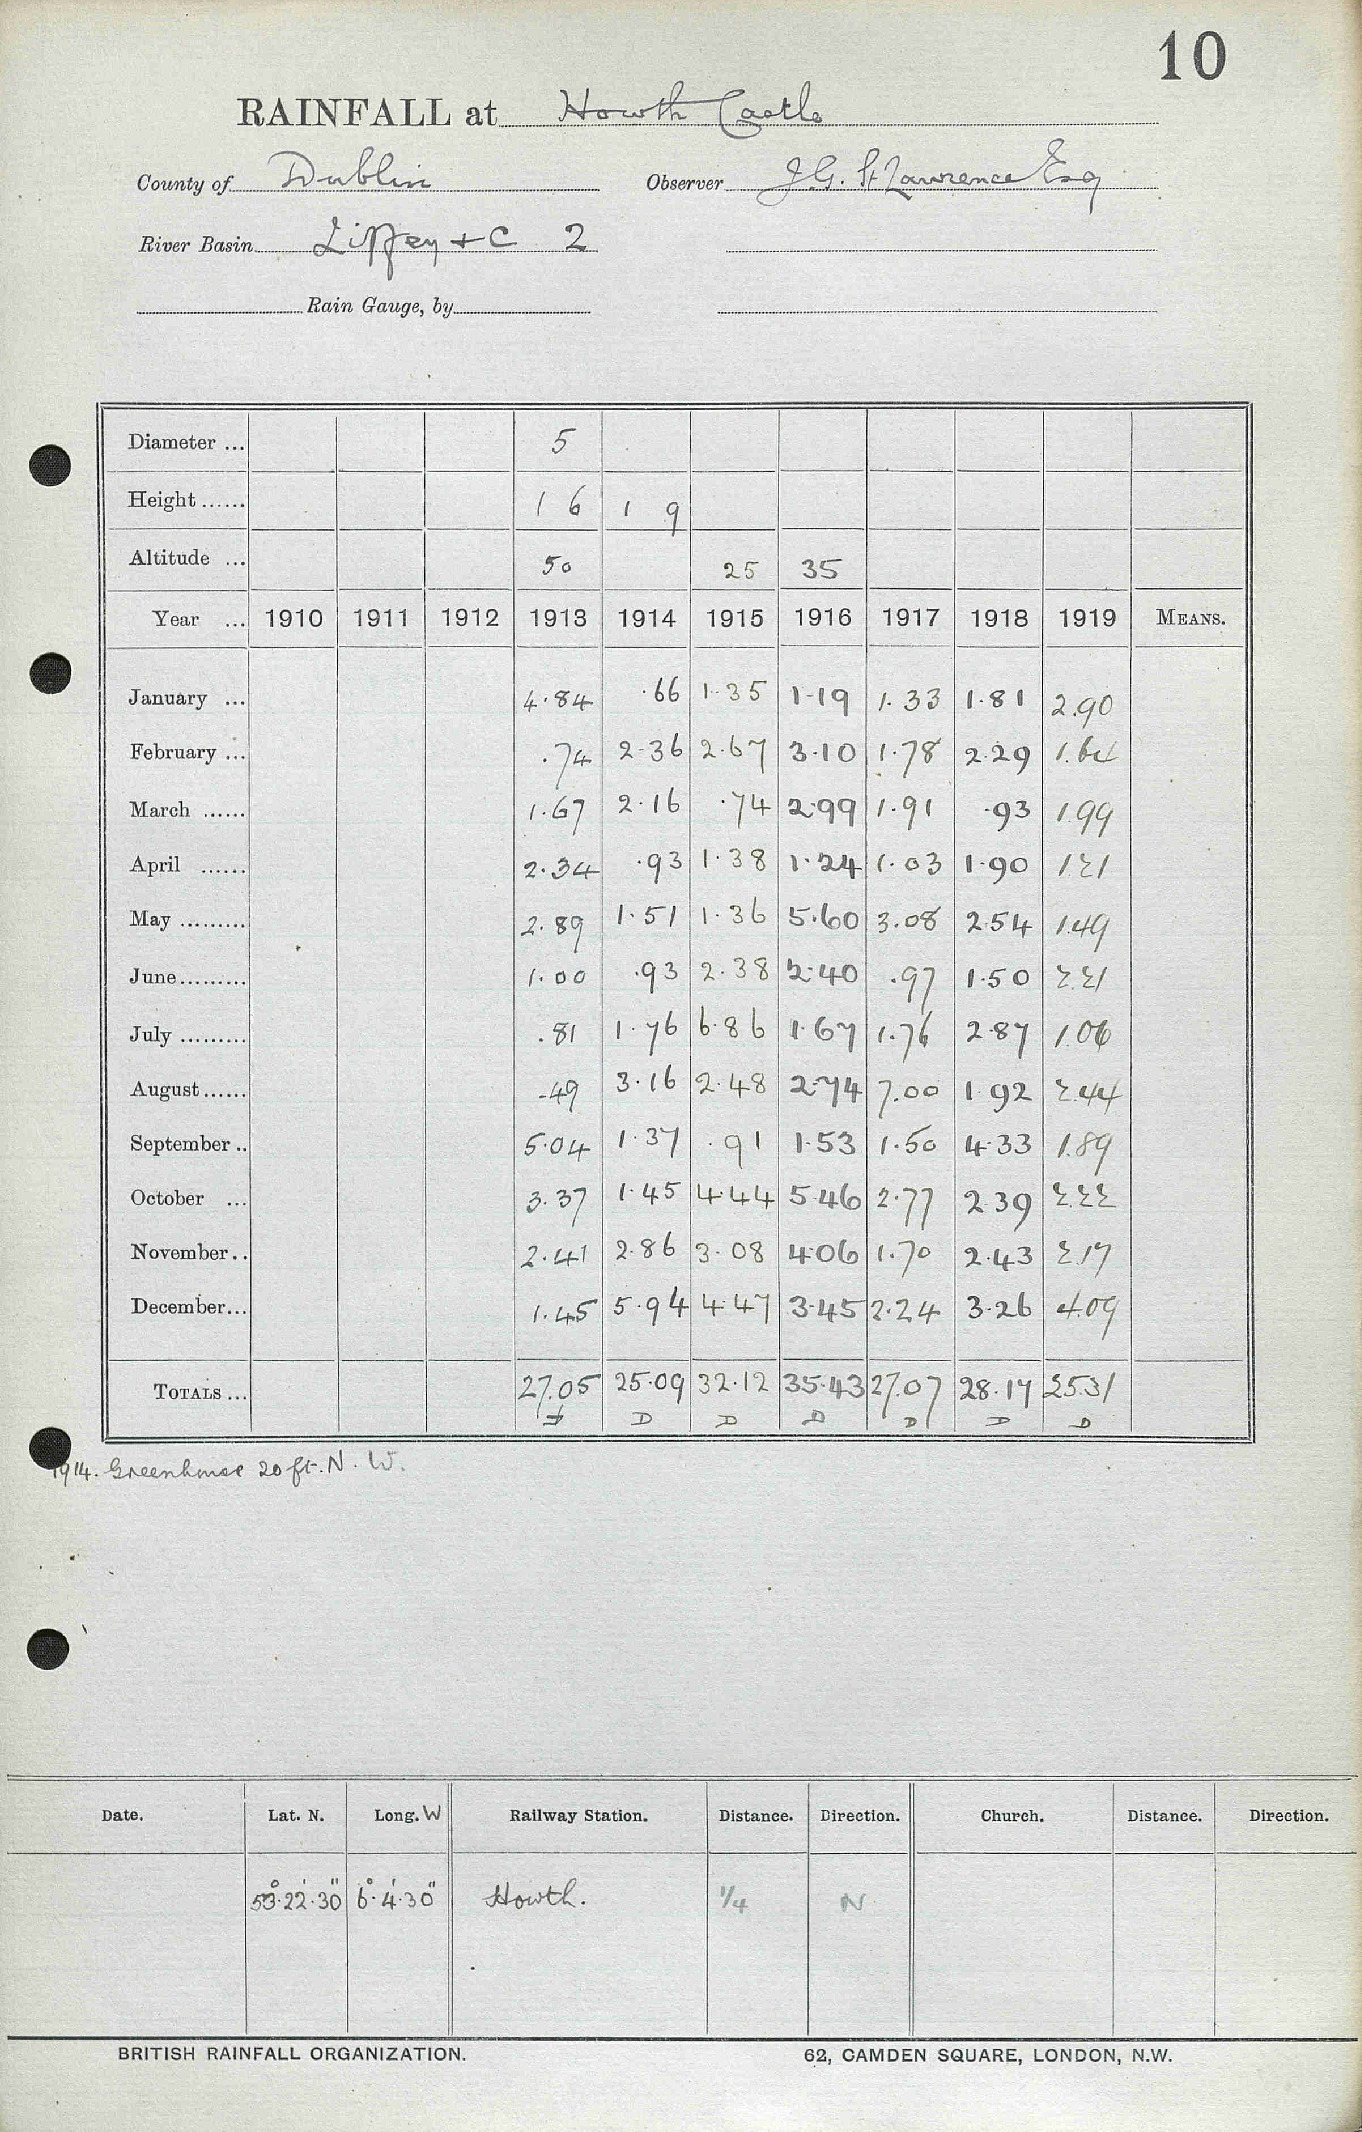 10
RAINFALL at Howth Castle
County of Dublin Observer J.G. St Lawrence Esq
River Basin Liffey + C 2
Rain Gauge, by
Diameter ... 5
Height ...... 1 6 1 9
Altitude ... 50 25 35
Year ... 1910 1911 1912 1913 1914 1915 1916 1917 1918 1919 MEANS.
January ... 4.84 .66 1.35 1.19 1.33 1.81 2.90
February ... .74 2.36 2.67 3.10 1.78 2.29 1.64
March ...... 1.67 2.16 .74 2.99 1.91 .93 1.99
April ...... 2.34 .93 1.38 1.24 1.03 1.90 1.21
May ......... 2.89 1.51 1.36 5.60 3.08 2.54 1.49
June......... 1.00 .93 2.38 2.40 .97 1.50 2.21
July ......... .81 1.76 6.86 1.67 1.76 2.87 1.06
August...... .49 3.16 2.48 2.74 7.00 1.92 2.44
September .. 5.04 1.37 .91 1.53 1.50 4.33 1.89
October ... 3.37 1.45 4.44 5.46 2.77 2.39 2.22
November.. 2.41 2.86 3.08 4.06 1.70 2.43 2.17
December... 1.45 5.94 4.47 3.45 2.24 3.26 4.09
TOTALS ... 27.05 25.09 32.12 35.43 27.07 28.17 25.31
D D D D D D
1914. Greenhouse 20 ft. N. W.
Date. Lat. N. Long. W Railway Station. Distance. Direction. Church. Distance. Direction.
53°.22'.30" 6°.4'.30" Howth. 1/4 N
BRITISH RAINFALL ORGANIZATION. 62, CAMDEN SQUARE, LONDON, N.W.